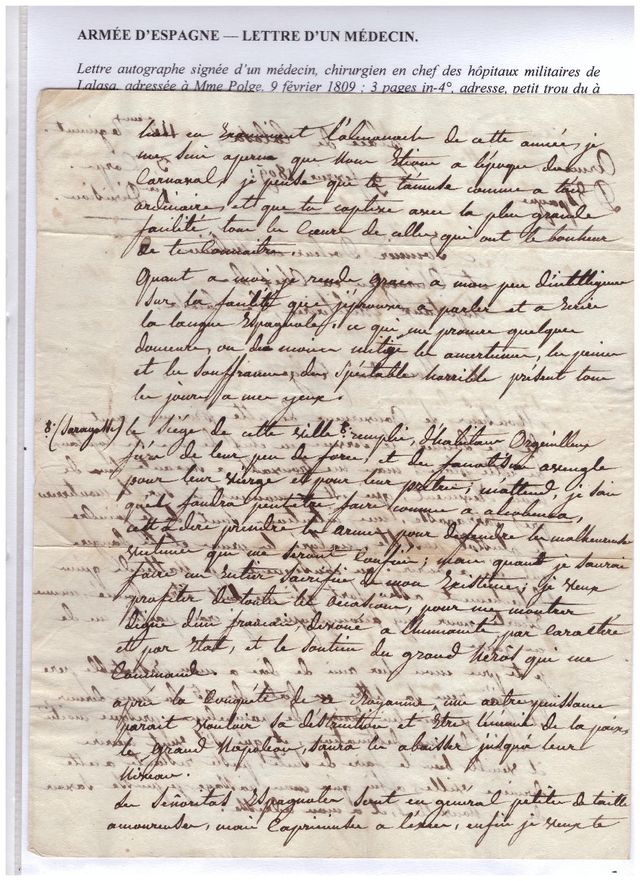 ARMÉE D'ESPAGNE — LETTRE D'UN MÉDECIN.
Lettre autographe signée d'un médecin, chirurgien en chef des hôpitaux militaires de
Lalasa, adressée à Mme Polge, 9 février 1809 ; 3 pages in-4°, adresse, petit trou du à
hier en Examinant l'almanach de cette année, je
me suis aperçu que Nous Etions a l'époque du
Carnaval, je pense que tu t'amuse comme a ton
ordinaire, et que tu captive avec la plus grande
facilité, tous les Cœurs de celles qui ont le bonheur
de te Connaitre.
Quant a moi je rends grace a mon peu d'intelligence
sur la facilité que j'éprouve a parler et a Ecrire
la langue Espagnole, ce qui me procure quelques
douceurs, ou du moins mitige les amertumes, les peines
et les souffrances, du spectable horrible présent tous
les jours a mes yeux.
8: (Saragosse) le siege de cette ville 8: remplie, d'habitans Orgeuilleux
fier de leur peu de force, et du fanatisme aveugle
pour leur vierge et pour leur prêtres; m'attend, je sai
qu'il faudra peutêtre faire comme a
c'est a dire prendre les armes pour défendre les malheureuse
victimes qui me seront Confiées; mais quant je saurai
faire un Entier Sacrifice de mon Existence; je veux
profiter de toute les occasions, pour me montrer
digne d'un francais, dévoué a l'humanité par caractère
et par Etat, et le soutien du grand héros qui me
Commande.
après la Conquête de ce Royaume, une autre puissance
parait vouloir sa destruction et Etre l'ennemie de la paix,
le grand Napoleon, saura les abaisser jusqu'a leur
Niveau.
Les Señoritas Espagnoles sont en general petites de taille
amoureuses, mais Capricieuses a l'excès, enfin je veux te